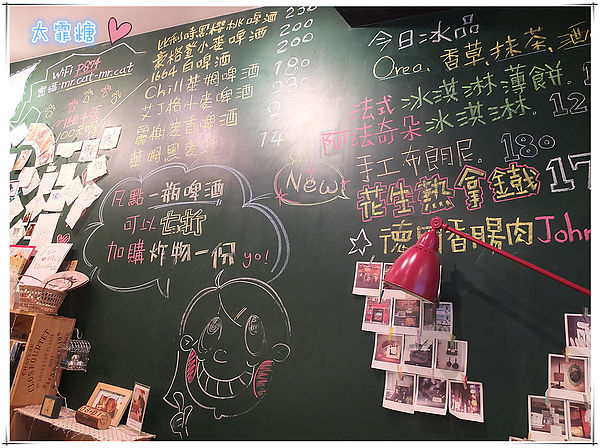 太霏糖
WiFi P874
密碼:mr.cat-mr.cat
比利時黑櫻桃啤酒 230
麥格登小麥啤酒 200
1664白啤酒 200
Chill荔姆啤酒 180
艾丁格小麥啤酒
麗樹麥香啤酒
荔姆黑麥汁
凡點一瓶啤酒
可以七折
加購炸物一份 yo!
New
今日:冰品
Oreo, 香草, 抹茶, 酒
法式:冰淇淋薄餅.
阿法奇朵:冰淇淋.
手工布朗尼. 180
花生熱拿鐵 17
德國香腸肉 John
CLOS FOURTET